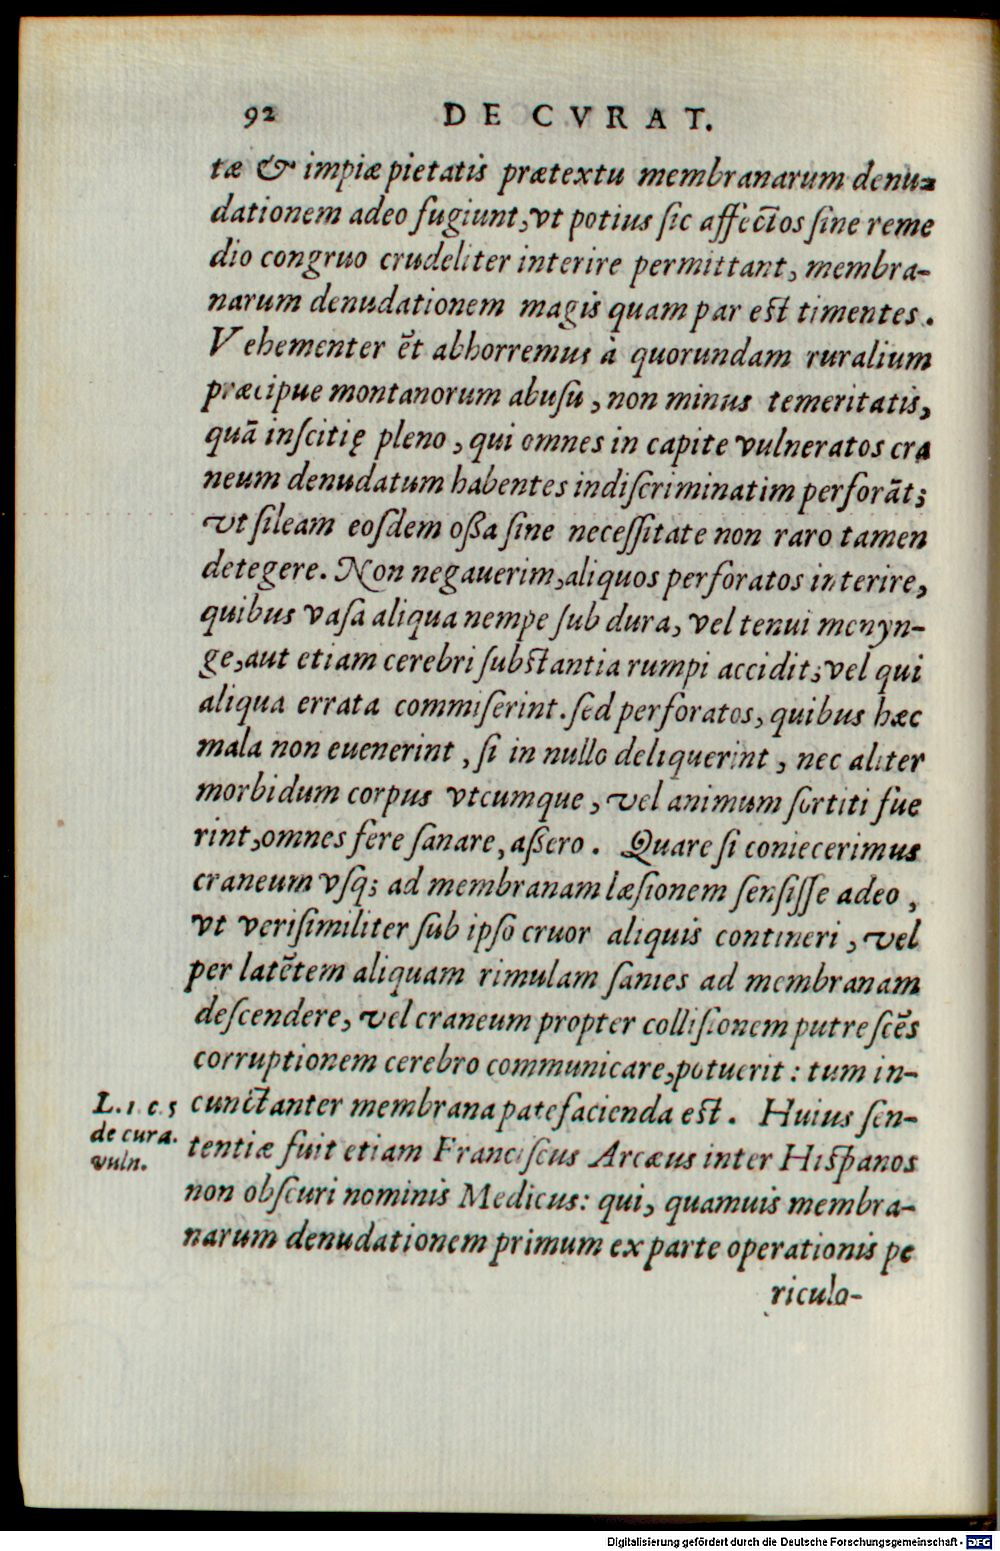 92 DE CVRAT.
tæ & impiæ pietatis prætextu membranarum denu-
dationem adeo fugiunt, vt potius sic affectos sine reme
dio congruo crudeliter interire permittant, membra-
narum denudationem magis quam par est timentes.
Vehementer ẽt abhorremus à quorundam ruralium
præcipue montanorum abusu, non minus temeritatis,
quã inscitię pleno, qui omnes in capite vulneratos cra
neum denudatum habentes indiscriminatim perforãt;
vt sileam eosdem oßa sine necessitate non raro tamen
detegere. Non negauerim, aliquos perforatos interire,
quibus vasa aliqua nempe sub dura, vel tenui menyn-
ge, aut etiam cerebri substantia rumpi accidit; vel qui
aliqua errata commiserint. sed perforatos, quibus hæc
mala non euenerint, si in nullo deliquerint, nec aliter
morbidum corpus vtcumque, vel animum sortiti fue
rint, omnes fere sanare, aßero. Quare si coniecerimus
craneum vsq; ad membranam læsionem sensisse adeo,
vt verisimiliter sub ipso cruor aliquis contineri, vel
per latẽtem aliquam rimulam sanies ad membranam
descendere, vel craneum propter collisionem putrescẽs
corruptionem cerebro communicare, potuerit: tum in-
cunctanter membrana patefacienda est. Huius sen-
tentiæ fuit etiam Franciscus Arcæus inter Hispanos
non obscuri nominis Medicus: qui, quamuis membra-
narum denudationem primum ex parte operationis pe
riculo-
L. 1. c. 5
de cura.
vuln.
Digitalisierung gefördert durch die Deutsche Forschungsgemeinschaft - DFG